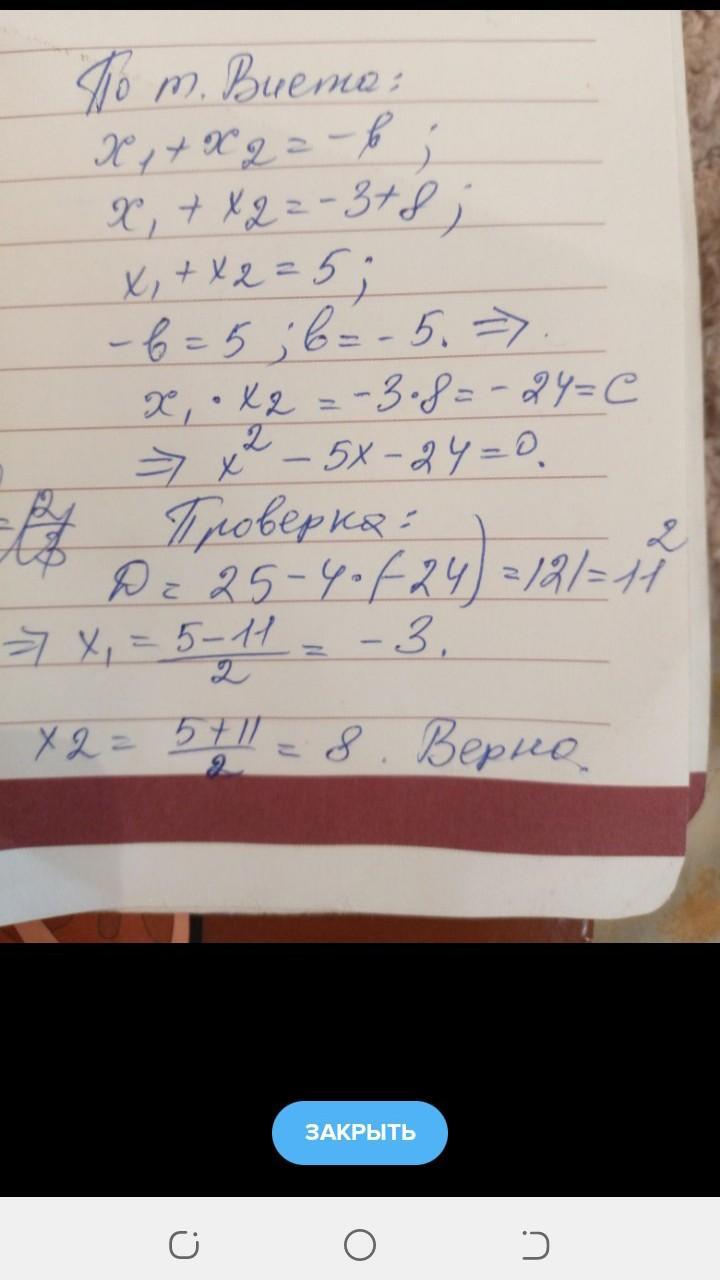 По т. Виета:
x₁ + x₂ = -в ;
x₁ + x₂ = -3+8 ;
x₁ + x₂ = 5 ;
-в = 5 ; в = -5. ⇒
x₁ · x₂ = -3·8 = -24 = C
⇒ x² - 5x - 24 = 0.
Проверка:
Д = 25 - 4·(-24) = 121 = 11²
⇒ x₁ = (5-11)/2 = -3.
x2 = (5+11)/2 = 8. Верно
ЗАКРЫТЬ